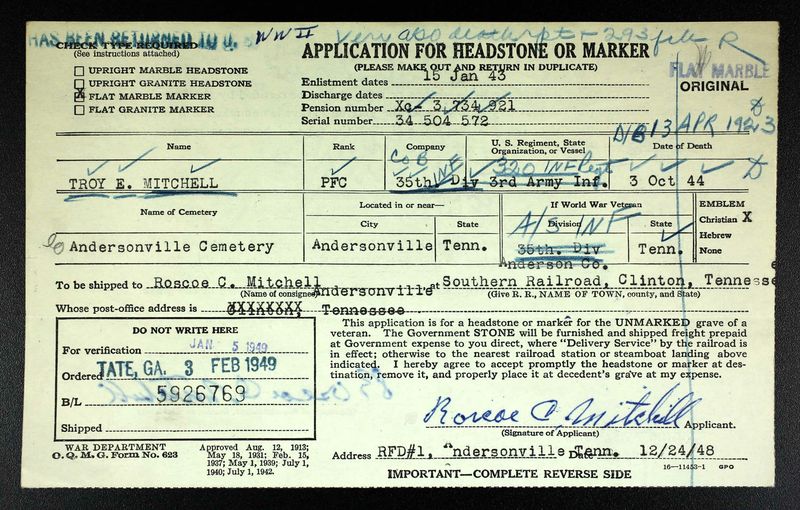 HAS BEEN RETURNED TO U.
WW II
CHECK TYPE REQUIRED
(See instructions attached)
UPRIGHT MARBLE HEADSTONE
UPRIGHT GRANITE HEADSTONE
X FLAT MARBLE MARKER
FLAT GRANITE MARKER
APPLICATION FOR HEADSTONE OR MARKER
(PLEASE MAKE OUT AND RETURN IN DUPLICATE)
Enlistment dates 15 Jan 43
Discharge dates
Pension number Xc- 3,734,921
Serial number 34 504 572
FLAT MARBLE
ORIGINAL
D/B 13 APR 1923
Name Rank Company U. S. Regiment, State Organization, or Vessel Date of Death
Co B INF 320 INF Regt
TROY E. MITCHELL PFC 35th Div 3rd Army Inf. 3 Oct 44
Name of Cemetery Located in or near— If World War Veteran EMBLEM
City State Division State Christian X
A/S INF Hebrew
Andersonville Cemetery Andersonville Tenn. 35th. Div Tenn. None
Anderson Co.
To be shipped to Roscoe C. Mitchell at Southern Railroad, Clinton, Tennessee
(Name of consignee) Andersonville (Give R. R., NAME OF TOWN, county, and State)
Whose post-office address is Clinton, Tennessee.
DO NOT WRITE HERE
For verification JAN 5 1949
Ordered TATE, GA. 3 FEB 1949
B/L 5926769
Shipped
This application is for a headstone or marker for the UNMARKED grave of a
veteran. The Government STONE will be furnished and shipped freight prepaid
at Government expense to you direct, where "Delivery Service" by the railroad is
in effect; otherwise to the nearest railroad station or steamboat landing above
indicated. I hereby agree to accept promptly the headstone or marker at des-
tination, remove it, and properly place it at decedent's grave at my expense.
Roscoe C. Mitchell Applicant.
(Signature of Applicant)
Address RFD#1, ndersonville, Tenn. Date 12/24/48
WAR DEPARTMENT
O. Q. M. G. Form No. 623
Approved Aug. 12, 1913;
May 18, 1931; Feb. 15,
1937; May 1, 1939; July 1,
1940; July 1, 1942.
IMPORTANT—COMPLETE REVERSE SIDE
16—11453-1 GPO